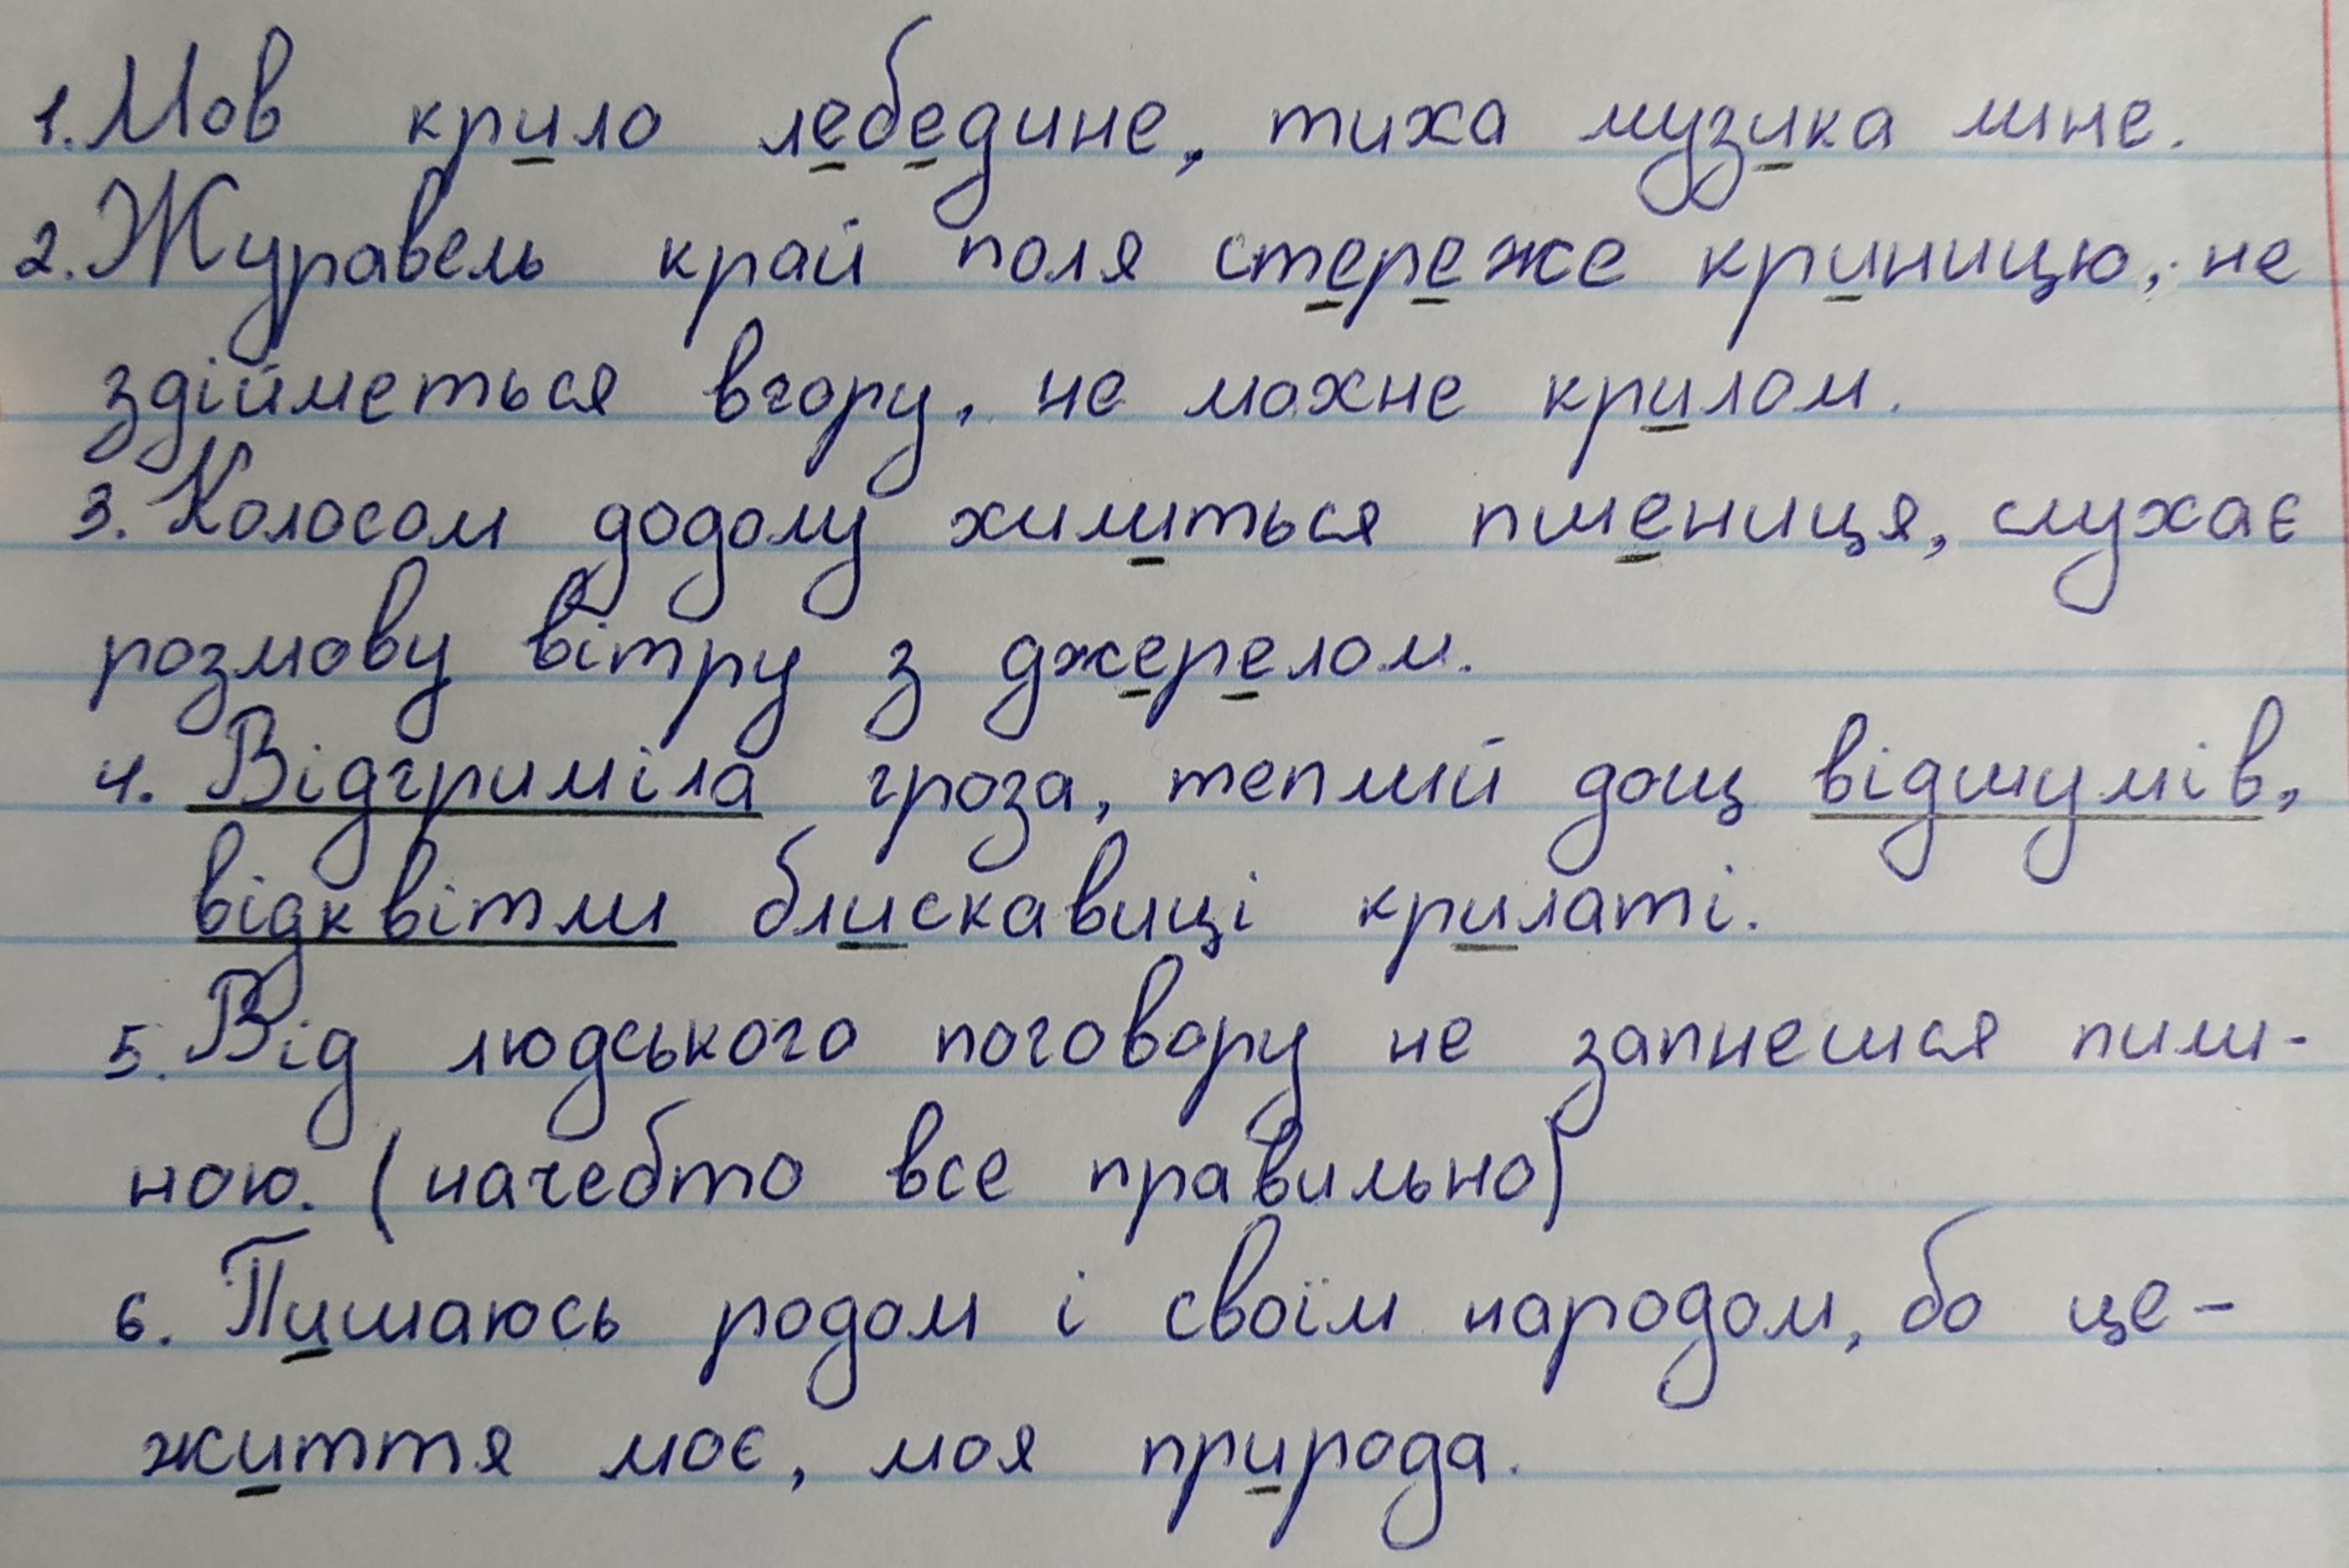 1. Мов крило лебедине, тиха музика лине.
2. Журавель край поля стереже криницю, не
здійметься вгору, не махне крилом.
3. Колосом додолу хилиться пшениця, слухає
розмову вітру з джерелом.
4. Відгриміла гроза, теплий дощ відшумів,
відквітли блискавиці крилаті.
5. Від людського поговору не запнешся пили-
ною. (начебто все правильно)
6. Пишаюсь родом і своїм народом, бо це -
життя моє, моя природа.